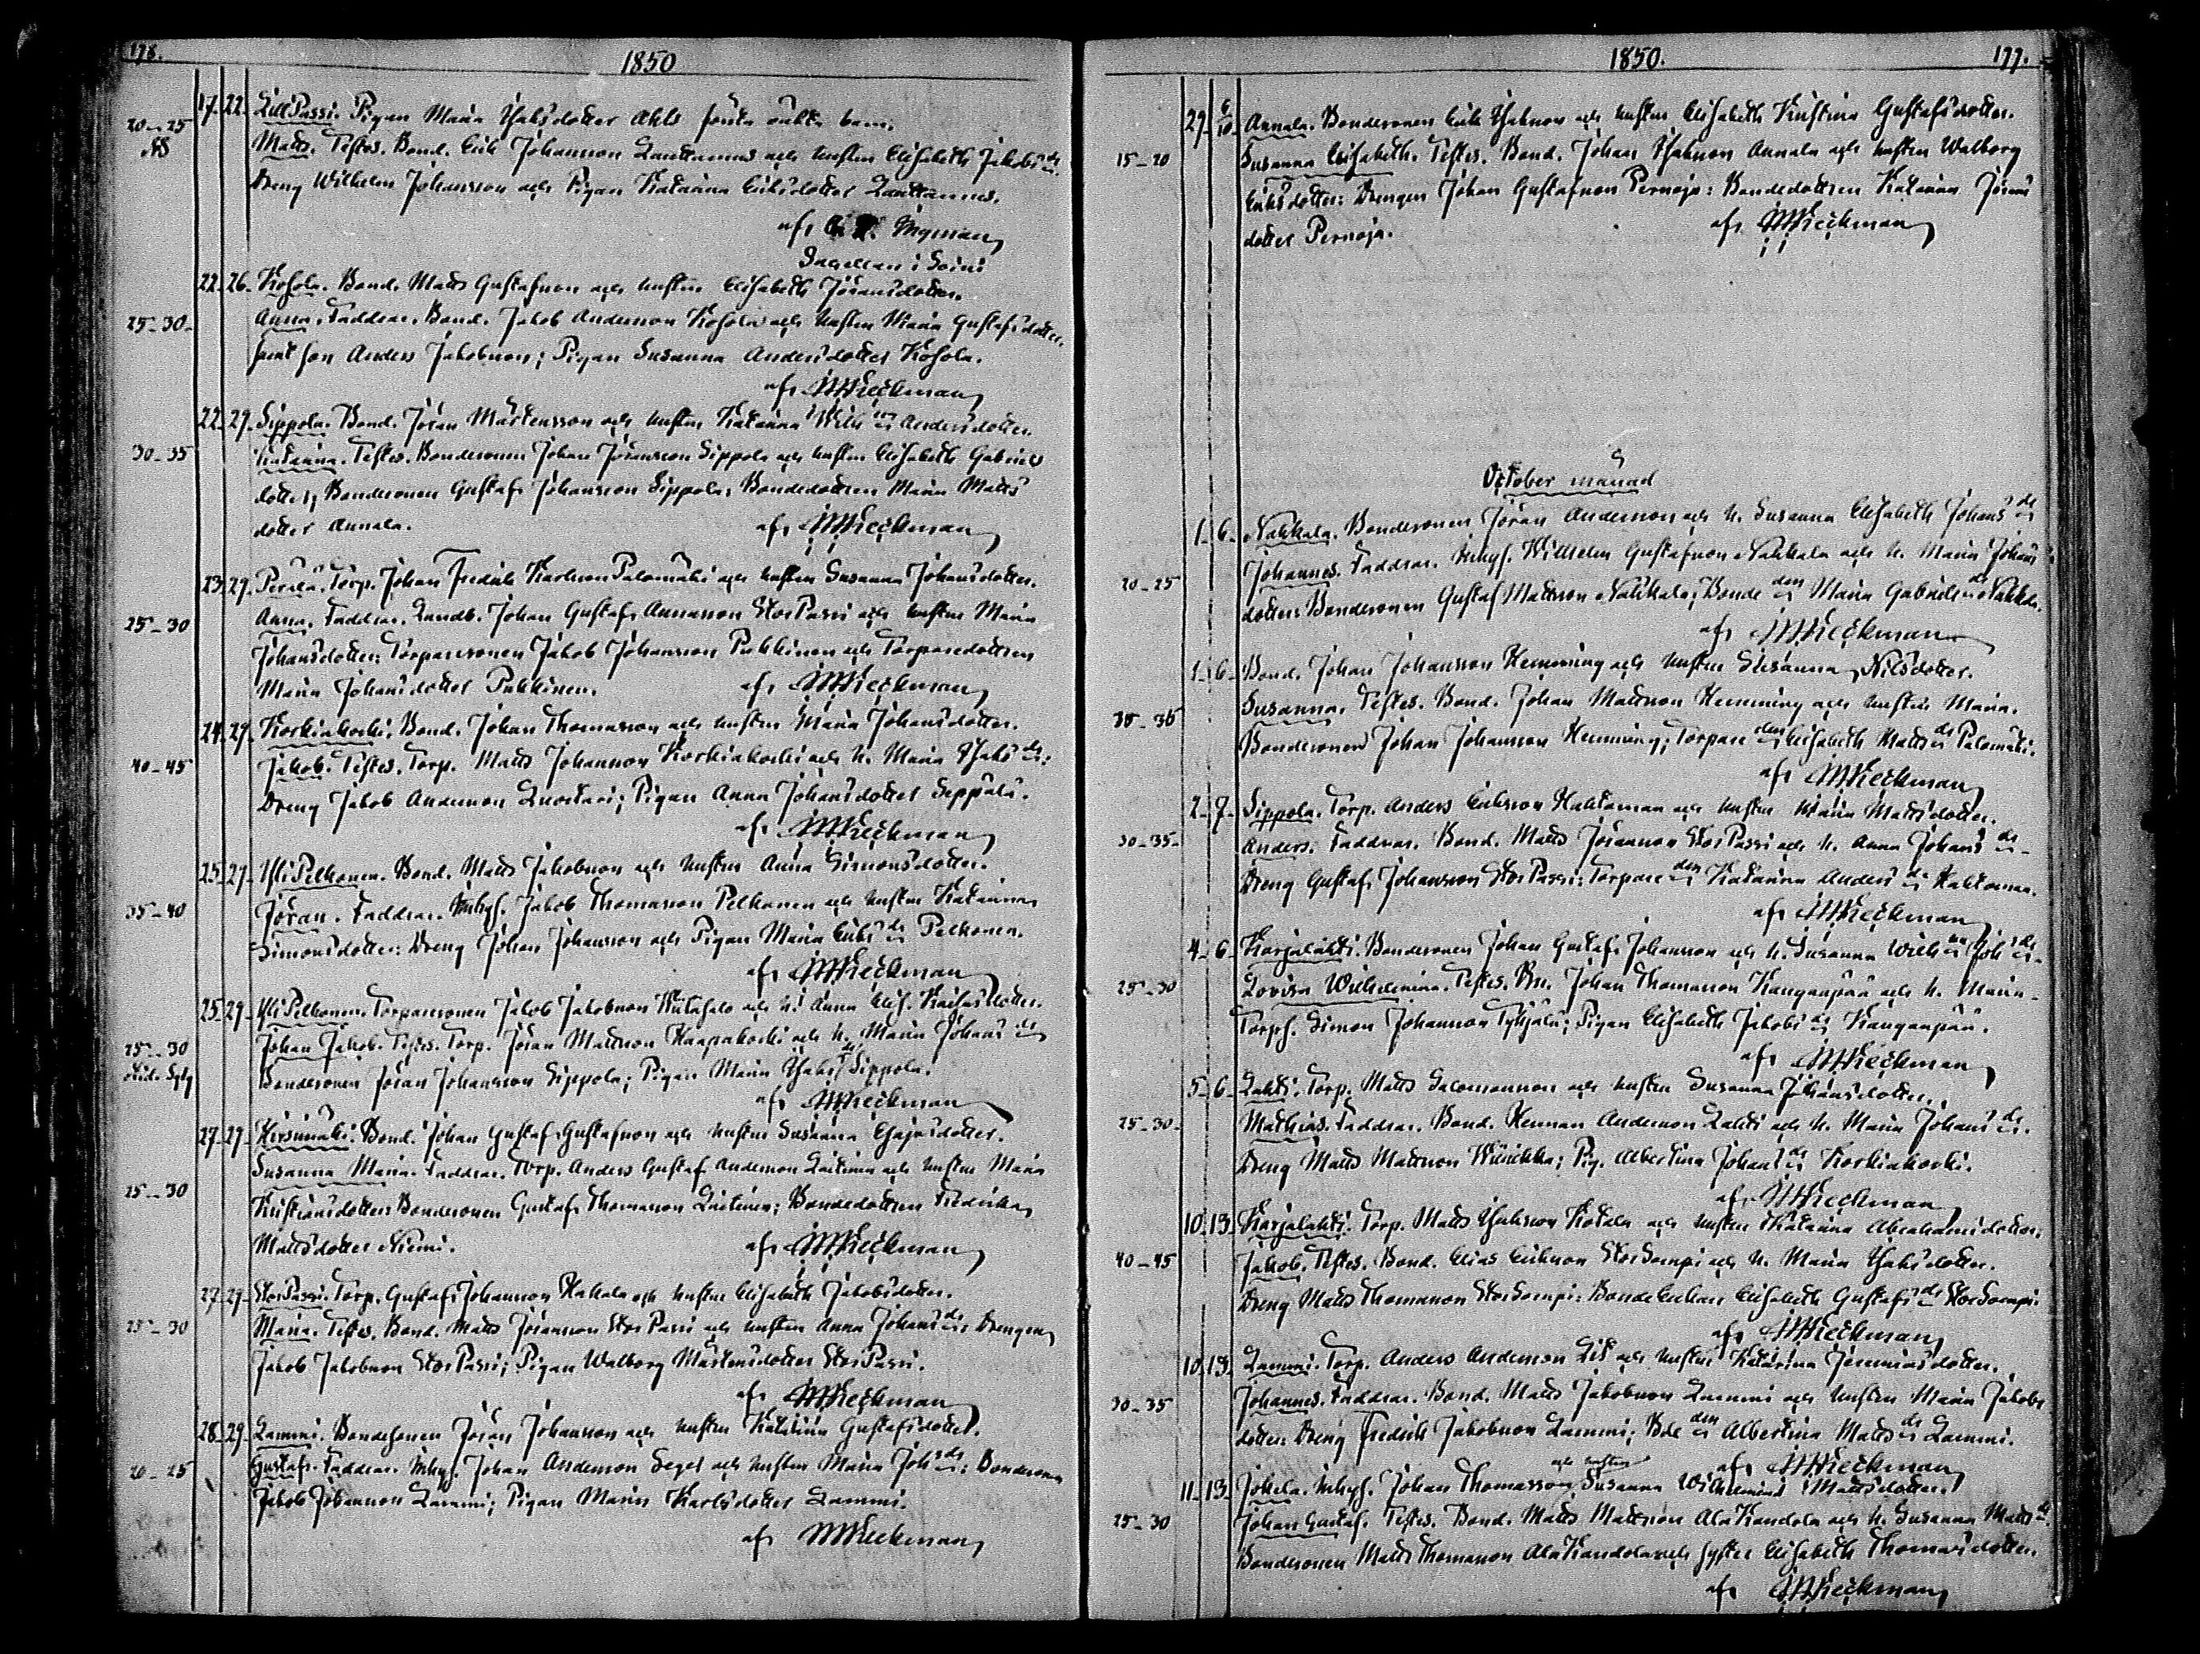 178.
1850
17. 22. LillPassi. Pigan Maria Isaksdotter Ahls sjette oäkta barn.
20-25 Matts. Testes. Bond. Erik Johansson Lauttamus och hustru Elisabeth Jakobs dr.
Dreng Wilhelm Johansson och Pigan Katarina Eriksdotter Lauttamus.
af Ingman
Sacellan i Soini
22. 26. Kohola. Bond. Matts Gustafsson och hustru Elisabeth Jöransdotter.
25-30- Anna. Faddrar. Bond. Jakob Andersson Kohola och hustru Maria Gustafsdotter,
samt son Anders Jakobsson; Pigan Susanna Andersdotter Kohola.
af Reckman
22. 29. Sippola. Bond. Jöran Mårtensson och hustru Katarina Wilh Andersdotter.
30-35 Katarina. Testes. Bondesonen Johan Jöransson Sippola och hustru Elisabeth Gabriels
dotter; Bondesonen Gustaf Johansson Sippola; Bondedottren Maria Matts
dotter Annala. af Reckman
23. 29. Perälä. Torp. Johan Fredrik Karlsson Palomäki och hustru Susanna Johansdotter.
25-30 Anna. Faddrar. Landb. Johan Gustaf Annasson StorPassi och hustru Maria
Johansdotter: Torparesonen Jakob Johansson Pukkinen och Torparedottren
Maria Johansdotter Pukkinen. af Reckman
24. 29. Korkiakoski. Bond. Johan Thomasson och hustru Maria Johansdotter.
40-45 Jakob. Testes. Torp. Matts Johansson Korkiakoski och h. Maria Isaks dr:
Dreng Jakob Andersson Luostari; Pigan Anna Johansdotter Seppälä.
af Reckman
25. 29. YliPelkonen. Bond. Matts Jakobsson och hustru Anna Simonsdotter.
35-40 Jöran. Faddrar. Inhys. Jakob Thomasson Pelkonen och hustru Katarina
Simonsdotter: Dreng Johan Johansson och Pigan Maria Eriks dr Pelkonen.
af Reckman
25. 29. YliPelkonen. Torparesonen Jakob Jakobsson och h. Anna Elis. Kaisasdotter.
25-30 Johan Jakob. Testes. Torp. Jöran Mattsson Haapakoski och h. Maria Johans dr
Bondesonen Jöran Johansson Sippola; Pigan Maria Isaks dr Sippola.
af Reckman
27. 29. Hirsimäki. Bond. Johan Gustaf Gustafsson och hustru Susanna Esajasdotter.
25-30 Susanna Maria. Faddrar. Torp. Anders Gustaf Andersson Laitinen och hustru Maria
Kristiansdotter: Bondesonen Gustaf Thomasson Laitinen; Bondedottren Fredrika
Mattsdotter Niemi. af Reckman
27. 29. StorPassi. Torp. Gustaf Johansson Hakala och hustru Elisabeth Jakobsdotter.
25-30 Maria. Testes. Bond. Matts Jöransson StorPassi och hustru Anna Johans dr: Drengen
Jakob Jakobsson StorPassi; Pigan Walborg Mårtensdotter StorPassi.
af Reckman
28. 29. Lammi. Bondesonen Jöran Johansson och hustru Katarina Gustafsdotter.
20-25 Gustaf. Faddrar. Inhys. Johan Andersson Seger och hustru Maria Joh dr: Bondesonen
Jakob Johansson Lammi; Pigan Maria Karlsdotter Lammi.
af Reckman
1850. 177.
29. 6/10 Annala. Bondesonen Erik Isaksson och hustru Elisabeth Kristina Gustafsdotter.
15-20 Susanna Elisabeth. Testes. Bond. Johan Isaksson Annala och hustru Walborg
Eriksdotter: Drengen Johan Gustafsson Pernoja: Bondedottren Katarina Jörans
dotter Pernoja. af Reckman
October månad
1. 6. Nakkala. Bondesonen Jöran Andersson och h. Susanna Elisabeth Johans dr
20-25 Johannes. Faddrar. Inhys. Wilhelm Gustafsson Nakkala och h. Maria Johans
dotter: Bondesonen Gustaf Mattsson Nakkala; Bonde den Maria Gabriels dr Nakkala.
af Reckman
1. 6. Bond. Johan Johansson Hemming och hustru Susanna Nilsdotter.
30-35 Susanna. Testes. Bond. Johan Mattsson Hemming och hustru Maria.
Bondesonen Johan Johansson Hemming; Torpare den Elisabeth Matts dr Palomäki.
af Reckman
2. 7. Sippola. Torp. Anders Eriksson Hautamaa och hustru Maria Mattsdotter.
30-35- Anders. Faddrar. Bond. Matts Jöransson StorPassi och h. Anna Johans dr-
Dreng Gustaf Johansson StorPassi: Torpare den Katarina Anders dr
af Reckman
4. 6. Karjalahti. Bondesonen Johan Gustaf Johansson och h. Susanna Wilh Joh dr-
25-30 Lovisa Wilhelmina. Testes. Bn. Johan Thomasson Kangaspää och h. Maria-
Torps. Simon Johansson Tyhjälä; Pigan Elisabeth Jakobs dr Kangaspää.
af Reckman
5. 6. Lahti. Torp. Matts Salomonsson och hustru Susanna Johansdotter.
25-30- Mathias. Faddrar. Bond. Herman Andersson Lahti och h. Maria Johans dr.
Dreng Matts Mattsson; Pig. Albertina Johans dr Korkiakoski.
af Reckman
10. 13. Karjalahti. Torp. Matts Isaksson Katala och hustru Katarina Abrahamsdotter.
40-45 Jakob. Testes. Bond. Elias Eriksson StorSompi och h. Maria Isaksdotter.
Dreng Matts Thomasson StorSompi: Bonde Elisabeth Gustafs dr StorSompi.
af Reckman
10. 13. Lammi. Torp. Anders Andersson Lit och hustru Katarina Jeremiasdotter.
30-35 Johannes. Faddrar. Bond. Matts Jakobsson Lammi och hustru Maria Jakobs
dotter: Dreng Fredrik Jakobsson Lammi; Bde den Albertina Matts dr Lammi.
af Reckman
11. 13. Jokela. Inhys. Johan Thomasson och hustru Susanna Wilhelmina Mattsdotter.
25-30 Johan Gustaf. Testes. Bond. Matts Mattsson AlaKandola och h. Susanna Matts dr.
Bondesonen Matts Thomasson AlaKandola och syster Elisabeth Thomasdotter.
af Reckman